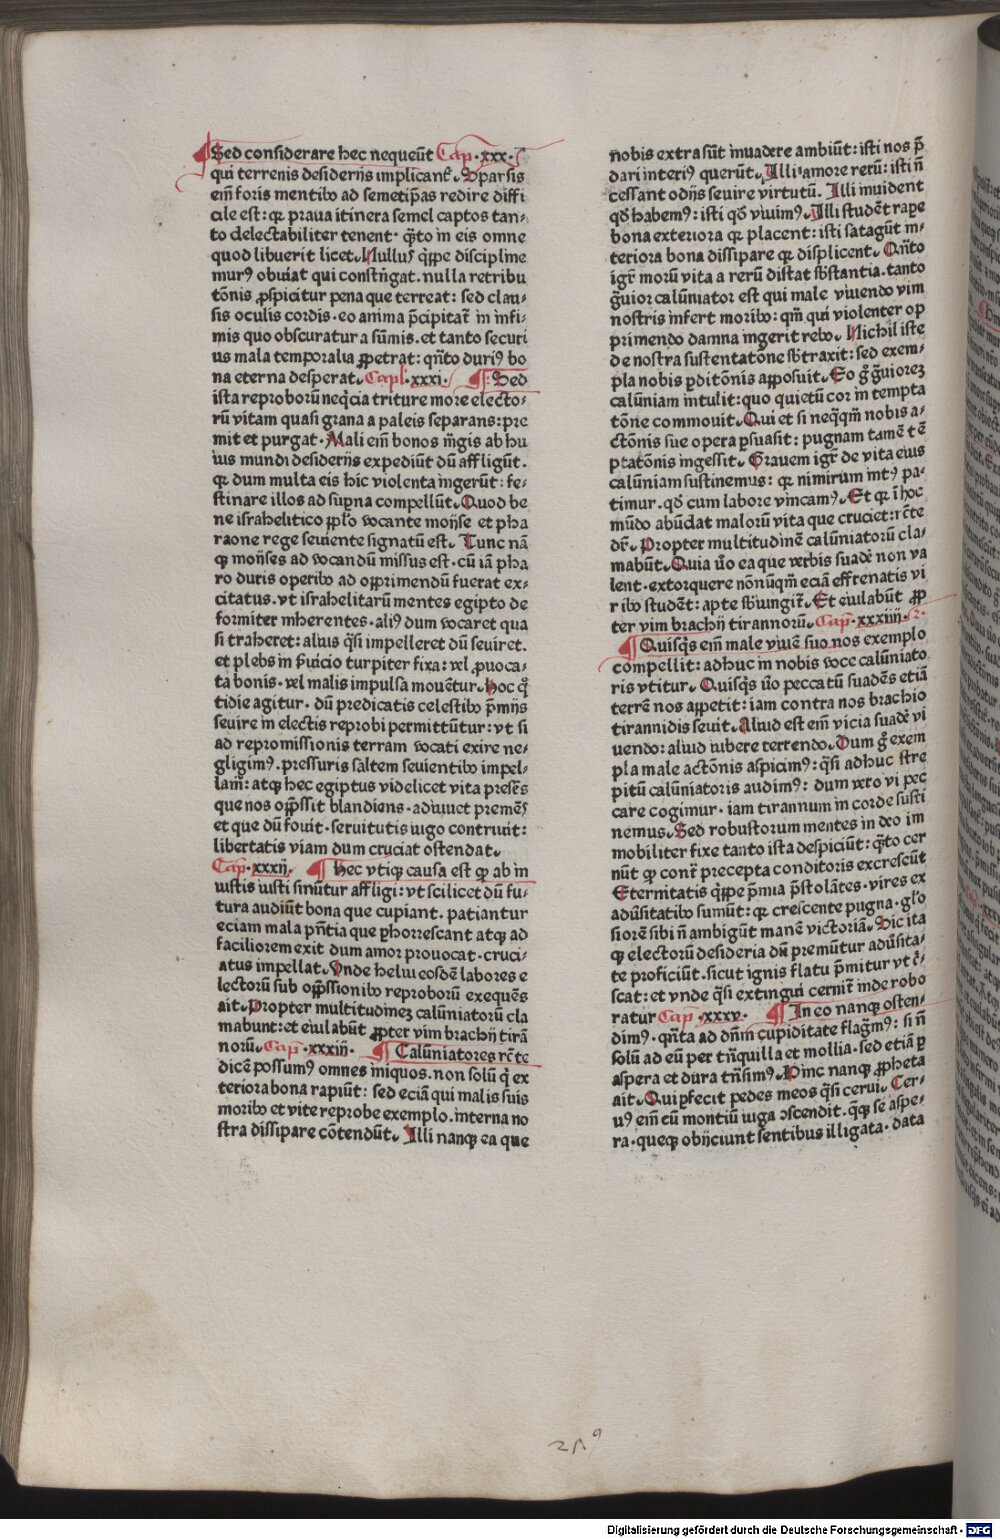 Sed considerare hec nequeūt Cap·xxx·
qui terrenis desiderijs implicant᷒. Sparsis
em̄ foris mentibꝰ ad semetip̄as redire diffi
cile est: qꝛ praua itinera semel captos tan-
to delectabiliter tenent· q̄to in eis omne
quod libuerit licet. Nullus q̄ppe discipline
murꝰ obuiat qui constn̄gat. nulla retribu
tōnis ꝓspicitur pena que terreat: sed clau-
sis oculis cordis·eo anima p̄cipitat᷒ in infi-
mis quo obscuratur a sūmis. et tanto securi
us mala temporalia ꝑpetrat: qn̄to duriꝰ bo
na eterna desperat. Capl̄·xxxi· Sed
ista reproborū neq̄cia triture more electo-
rū vitam quasi grana a paleis separans: pre
mit et purgat·Mali em̄ bonos m̄gis ab hu
ius mundi desiderijs expediūt dū affligūt.
qꝛ dum multa eis hic violenta ingerūt: fe-
stinare illos ad sup̄na compellūt. Quod be
ne israhelitico pplo vocante moyse et pha
raone rege seuiente signatū est. Tunc nā
qꝫ moyses ad vocandū missus est·cū iā pha
ro duris operibꝰ ad opprimendū fuerat ex-
citatus. vt israhelitarū mentes egipto de
formiter inherentes·aliꝰ dum vocaret qua
si traheret: alius q̄si impelleret dū seuiret.
et plebs in s̄uicio turpiter fixa: vel ꝓuoca-
ta bonis·vel malis impulsa mouētur. hoc q̄
tidie agitur· dū predicatis celestibꝰ p̄mijs
seuire in electis reprobi permittūtur: vt si
ad repromissionis terram vocati exire ne-
gligimꝰ. pressuris saltem seuientibꝰ impel-
lam᷒: atqꝫ hec egiptus videlicet vita presēs
que nos opp̄ssit blandiens·adiuuet premēs
et que dū fouit·seruitutis iugo contriuit:
libertatis viam dum cruciat ostendat.
Cap̄·xxxij. hec vtiqꝫ causa est qꝫ ab in
iustis iusti sinūtur affligi: vt scilicet dū fu-
tura audiūt bona que cupiant. patiantur
eciam mala pn̄tia que ꝑhorrescant atqꝫ ad
faciliorem exit dum amor prouocat·cruci-
atus impellat. Vnde heliu eosdē labores e
lectorū sub opp̄ssionibꝰ reproborū exequēs
ait. Propter multitudineꝫ calūniatorū cla
mabunt: et eiulabūt ꝓpter vim brachij tirā
norū. Cap̄·xxxiij· Calūniatores rc̄te
dicē possumꝰ omnes iniquos. non solū q̄ ex
teriora bona rapiūt: sed eciā qui malis suis
moribꝰ et vite reprobe exemplo. interna no
stra dissipare cōtendūt. Illi nanqꝫ ea que
nobis extra sūt inuadere ambiūt: isti nos p̄
dari interiꝰ querūt. Illi amore rerū: isti n̄
cessant odijs seuire virtutū. Illi inuident
qd̄ habemꝰ: isti qd̄ viuimꝰ. Illi studēt rape
bona exteriora qꝛ placent: isti satagūt in-
teriora bona dissipare qꝛ displicent. Qn̄to
igr᷒ morū vita a rerū distat sb̄stantia. tanto
g̊uior calūniator est qui male viuendo vim
nostris infert moribꝰ: qm̄ qui violenter op
primendo damna ingerit rebꝰ. Nichil iste
de nostra sustentatōne sb̄traxit: sed exem-
pla nobis ꝑditōnis apposuit. Eo g̊ g̊uioreꝫ
calūniam intulit: quo quietū cor in tempta
tōne commouit. Qui et si neq̄qm̄ nobis a-
ctōnis sue opera ꝑsuasit: pugnam tamē tē
ptatōnis ingessit. Grauem igr᷒ de vita eius
calūniam sustinemus: qꝛ nimirum intꝰ pa-
timur. qd̄ cum labore vincamꝰ. Et qꝛ i hoc
mūdo abūdat malorū vita que cruciet: rc̄te
dr᷒. Propter multitudinē calūniatorū cla-
mabūt. Quia v̊o ea que verbis suadē non va
lent·extorquere nōnūqm̄ eciā effrenatis vi
ribꝰ studēt: apte sb̄iungit᷒. Et eiulabūt ꝓp
ter vim brachij tirannorū. Cap̄·xxxiiij·
Quisqꝫ em̄ male viuē suo nos exemplo
compellit: adhuc in nobis voce calūniato
ris vtitur. Quisqꝫ v̊o peccatū suadēs etiā
terrē nos appetit: iam contra nos brachio
tirannidis seuit. Aliud est em̄ vicia suadē vi
uendo: aliud iubere terrendo. Dum g̊ exem
pla male actōnis aspicimꝰ: q̄si adhuc stre
pitū calūniatoris audimꝰ: dum vero vi pec
care cogimur· iam tirannum in corde susti
nemus. Sed robustorum mentes in deo im
mobiliter fixe tanto ista despiciūt: q̄to cer
nūt qꝫ cont᷒ precepta conditoris excrescūt
Eternitatis q̄ppe p̄mia p̄stolātes·vires ex
adūsitatibꝰ sumūt: qꝛ crescente pugna·glo
siorē sibi n̄ ambigūt manē victoriā. Sic ita
qꝫ electorū desideria dū premūtur adūsita-
te proficiūt. sicut ignis flatu p̄mitur vt c̊-
scat: et vnde q̄si extingui cernit᷒ inde robo
ratur Cap̄·xxxv· In eo nanqꝫ osten-
dimꝰ. qn̄ta ad dn̄m cupiditate flag̊mꝰ: si n̄
solū ad eū per tn̄quilla et mollia·sed etiā ꝑ
aspera et dura tn̄simꝰ. Hinc nanqꝫ ꝓpheta
ait. Qui ꝑfecit pedes meos q̄si cerui. Cer-
uꝰ em̄ cū montiū iuga ꝯscendit·q̄qꝫ se aspe-
ra·queqꝫ obijciunt sentibus illigata·data
Digitalisierung gefördert durch die Deutsche Forschungsgemeinschaft - DFG